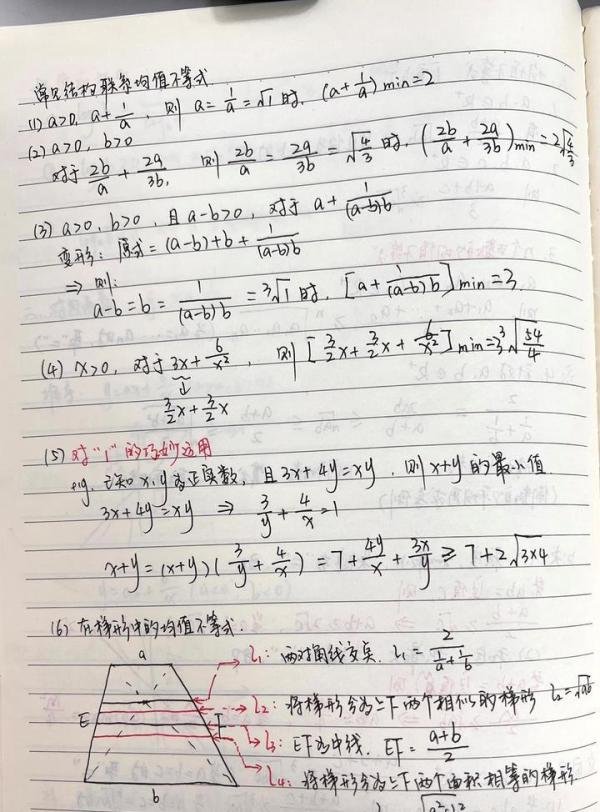 常见结构联系均值不等式
(1) a>0, a+1/a, 则 a=1/a=√1 时, (a+1/a)min=2
(2) a>0, b>0
对于 2b/a+2a/3b, 则 2b/a=2a/3b=√(4/3) 时, (2b/a+2a/3b)min=2√(4/3)
(3) a>0, b>0, 且 a-b>0, 对于 a+1/((a-b)b)
变形: 原式=(a-b)+b+1/((a-b)b)
⇒ 则:
a-b=b=1/((a-b)b)=³√1 时, [a+1/((a-b)b)]min=3
(4) x>0, 对于 3x+6/x², 则 [3/2x+3/2x+6/x²]min=3³√(54/4)
3/2x+3/2x
(5) 对“1”的巧妙运用
eg. 已知 x, y 为正实数, 且 3x+4y=xy, 则 x+y 的最小值
3x+4y=xy ⇒ 3/y+4/x=1
x+y=(x+y)(3/y+4/x)=7+4y/x+3x/y≥7+2√(3×4)
(6) 在梯形中的均值不等式.
a
l₁: 两对角线交点. l₁=2/(1/a+1/b)
l₂: 将梯形分为上下两个相似的梯形 l₂=√ab
E F
l₃: EF为中线. EF=(a+b)/2
l₄: 将梯形分为上下两个面积相等的梯形.
b